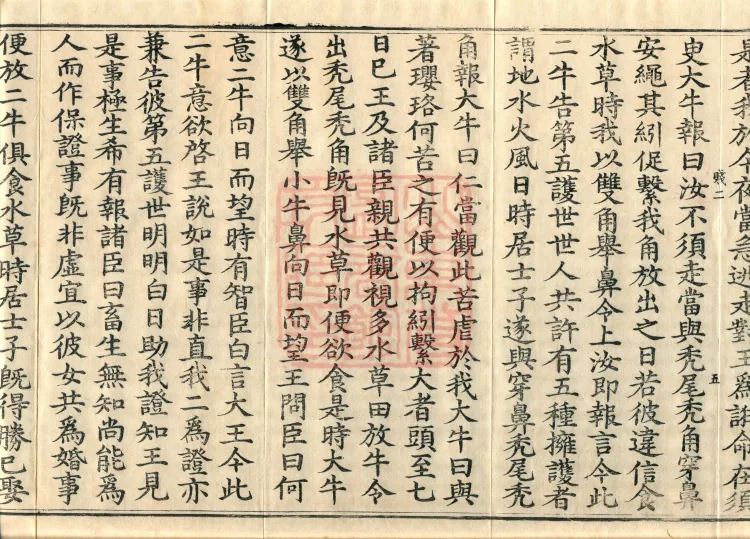 是者我於今夜當急逃走對王爲誑命在須
臾大牛報曰汝不須走當與禿尾禿角穿鼻
賤二 五
安繩其紖促繫我角放出之日若彼違信食
水草時我以雙角舉鼻令上汝即報言今此
二牛告第五護世世人共許有五種擁護者
謂地水火風日時居士子遂與穿鼻禿尾禿
角報大牛曰仁當觀此苦虐於我大牛曰與
著瓔珞何苦之有便以拘紖繫大者頭至七
日已王及諸臣親共觀視多水草田放牛令
出禿尾禿角既見水草即便欲食是時大牛
遂以雙角舉小牛鼻向日而望王問臣曰何
意二牛向日而望時有智臣白言大王今此
二牛意欲啓王說如是事非直我二爲證亦
兼告彼第五護世明明白日助我證知王見
是事極生希有報諸臣曰畜生無知尚能爲
人而作保證事既非虛宜以彼女共爲婚事
便放二牛俱食水草時居士子既得勝已娶